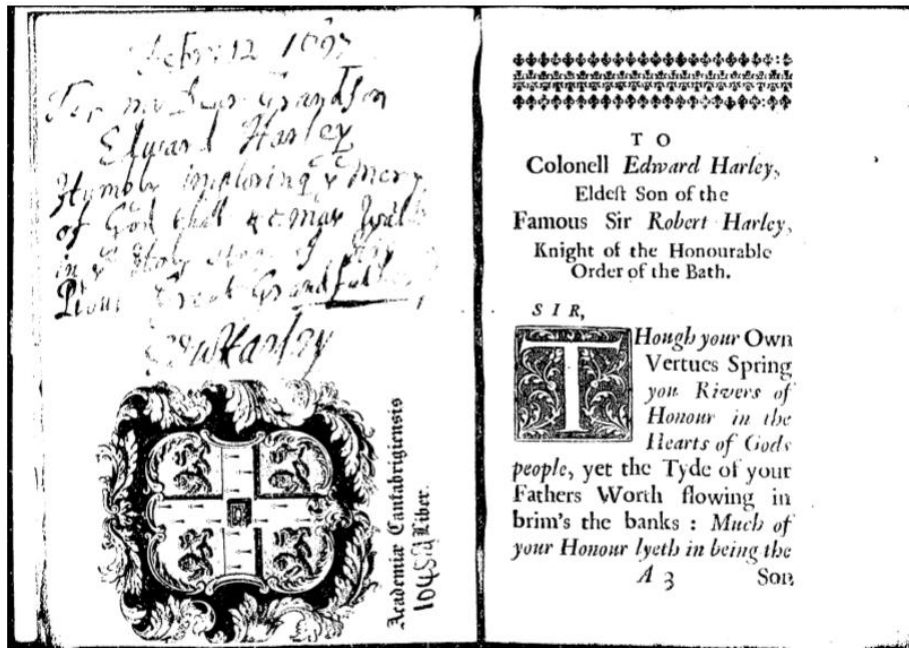 Febr: 12 1697
For my Grandson
Edward Harley
Humbly imploring yᵉ Mercy
of God that he may Walk
in yᵉ Holy of
Pious Great Grandfather
Edw Harley
Academiæ Cantabrigiensis
Liber.
TO
Colonell Edward Harley,
Eldeſt Son of the
Famous Sir Robert Harley,
Knight of the Honourable
Order of the Bath.
SIR,
THough your Own
Vertues Spring
you Rivers of
Honour in the
Hearts of Gods
people, yet the Tyde of your
Fathers Worth flowing in
brim's the banks : Much of
your Honour lyeth in being the
A 3 Son